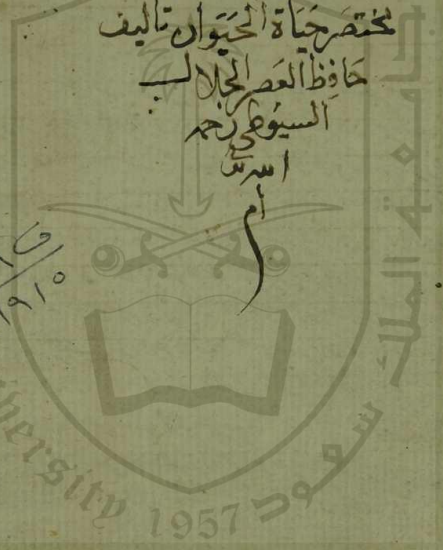 مختصر حياة الحيوان تاليف
حافظ العصر الجلال
السيوطي رحمه
الله
ام
ف
١٩١٥
جامعة الملك سعود
versity 1957